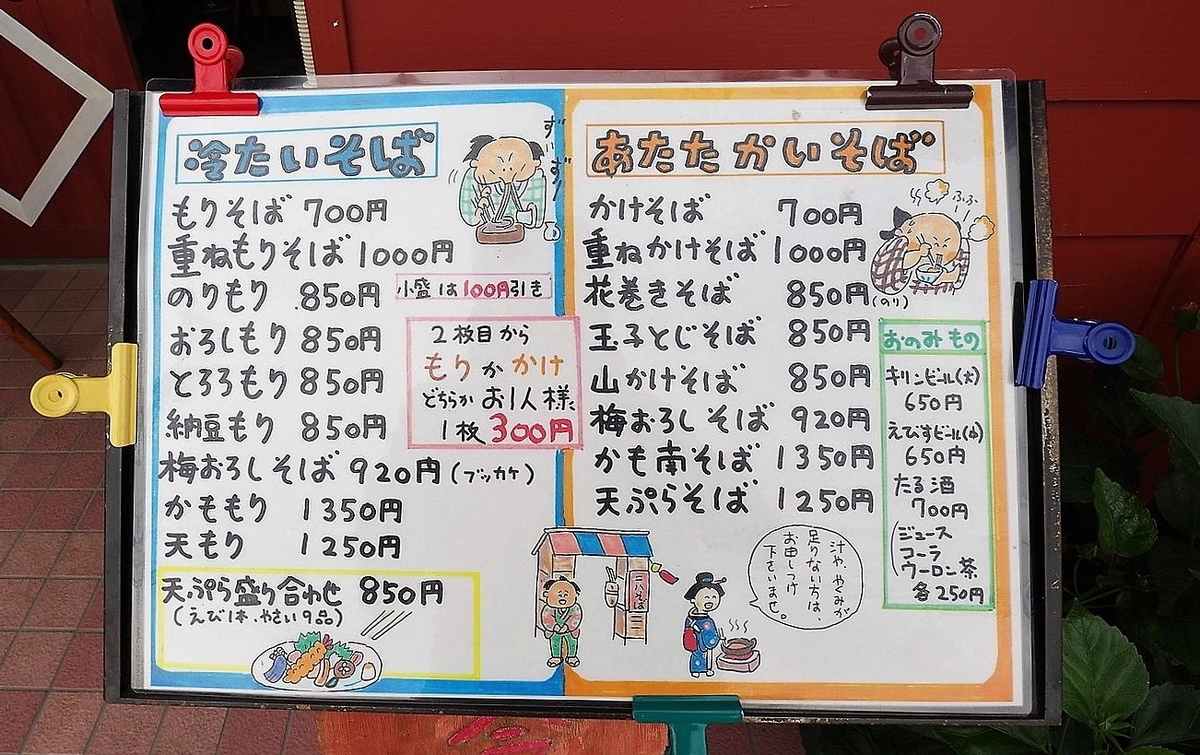 冷たいそば
ずずっ ずずっ
もりそば 700円
重ねもりそば 1000円
のりもり 850円
小盛は100円引き
おろしもり 850円
とろろもり 850円
納豆もり 850円
梅おろしそば 920円(ブッカケ)
かももり 1350円
天もり 1250円
2枚目から
もりかかけ
どちらかお1人様
1枚300円
天ぷら盛り合わせ 850円
(えび1本、やさい9品)
あたたかいそば
ふぅふぅ
かけそば 700円
重ねかけそば 1000円
花巻きそば 850円(のり)
玉子とじそば 850円
山かけそば 850円
梅おろしそば 920円
かも南そば 1350円
天ぷらそば 1250円
おのみもの
キリンビール(大)
650円
えびすビール(中)
650円
たる酒
700円
(ジュース
コーラ
ウーロン茶
各250円
二八そば
汁や、やくみが
足りない方は、
お申しつけ
下さいませ。